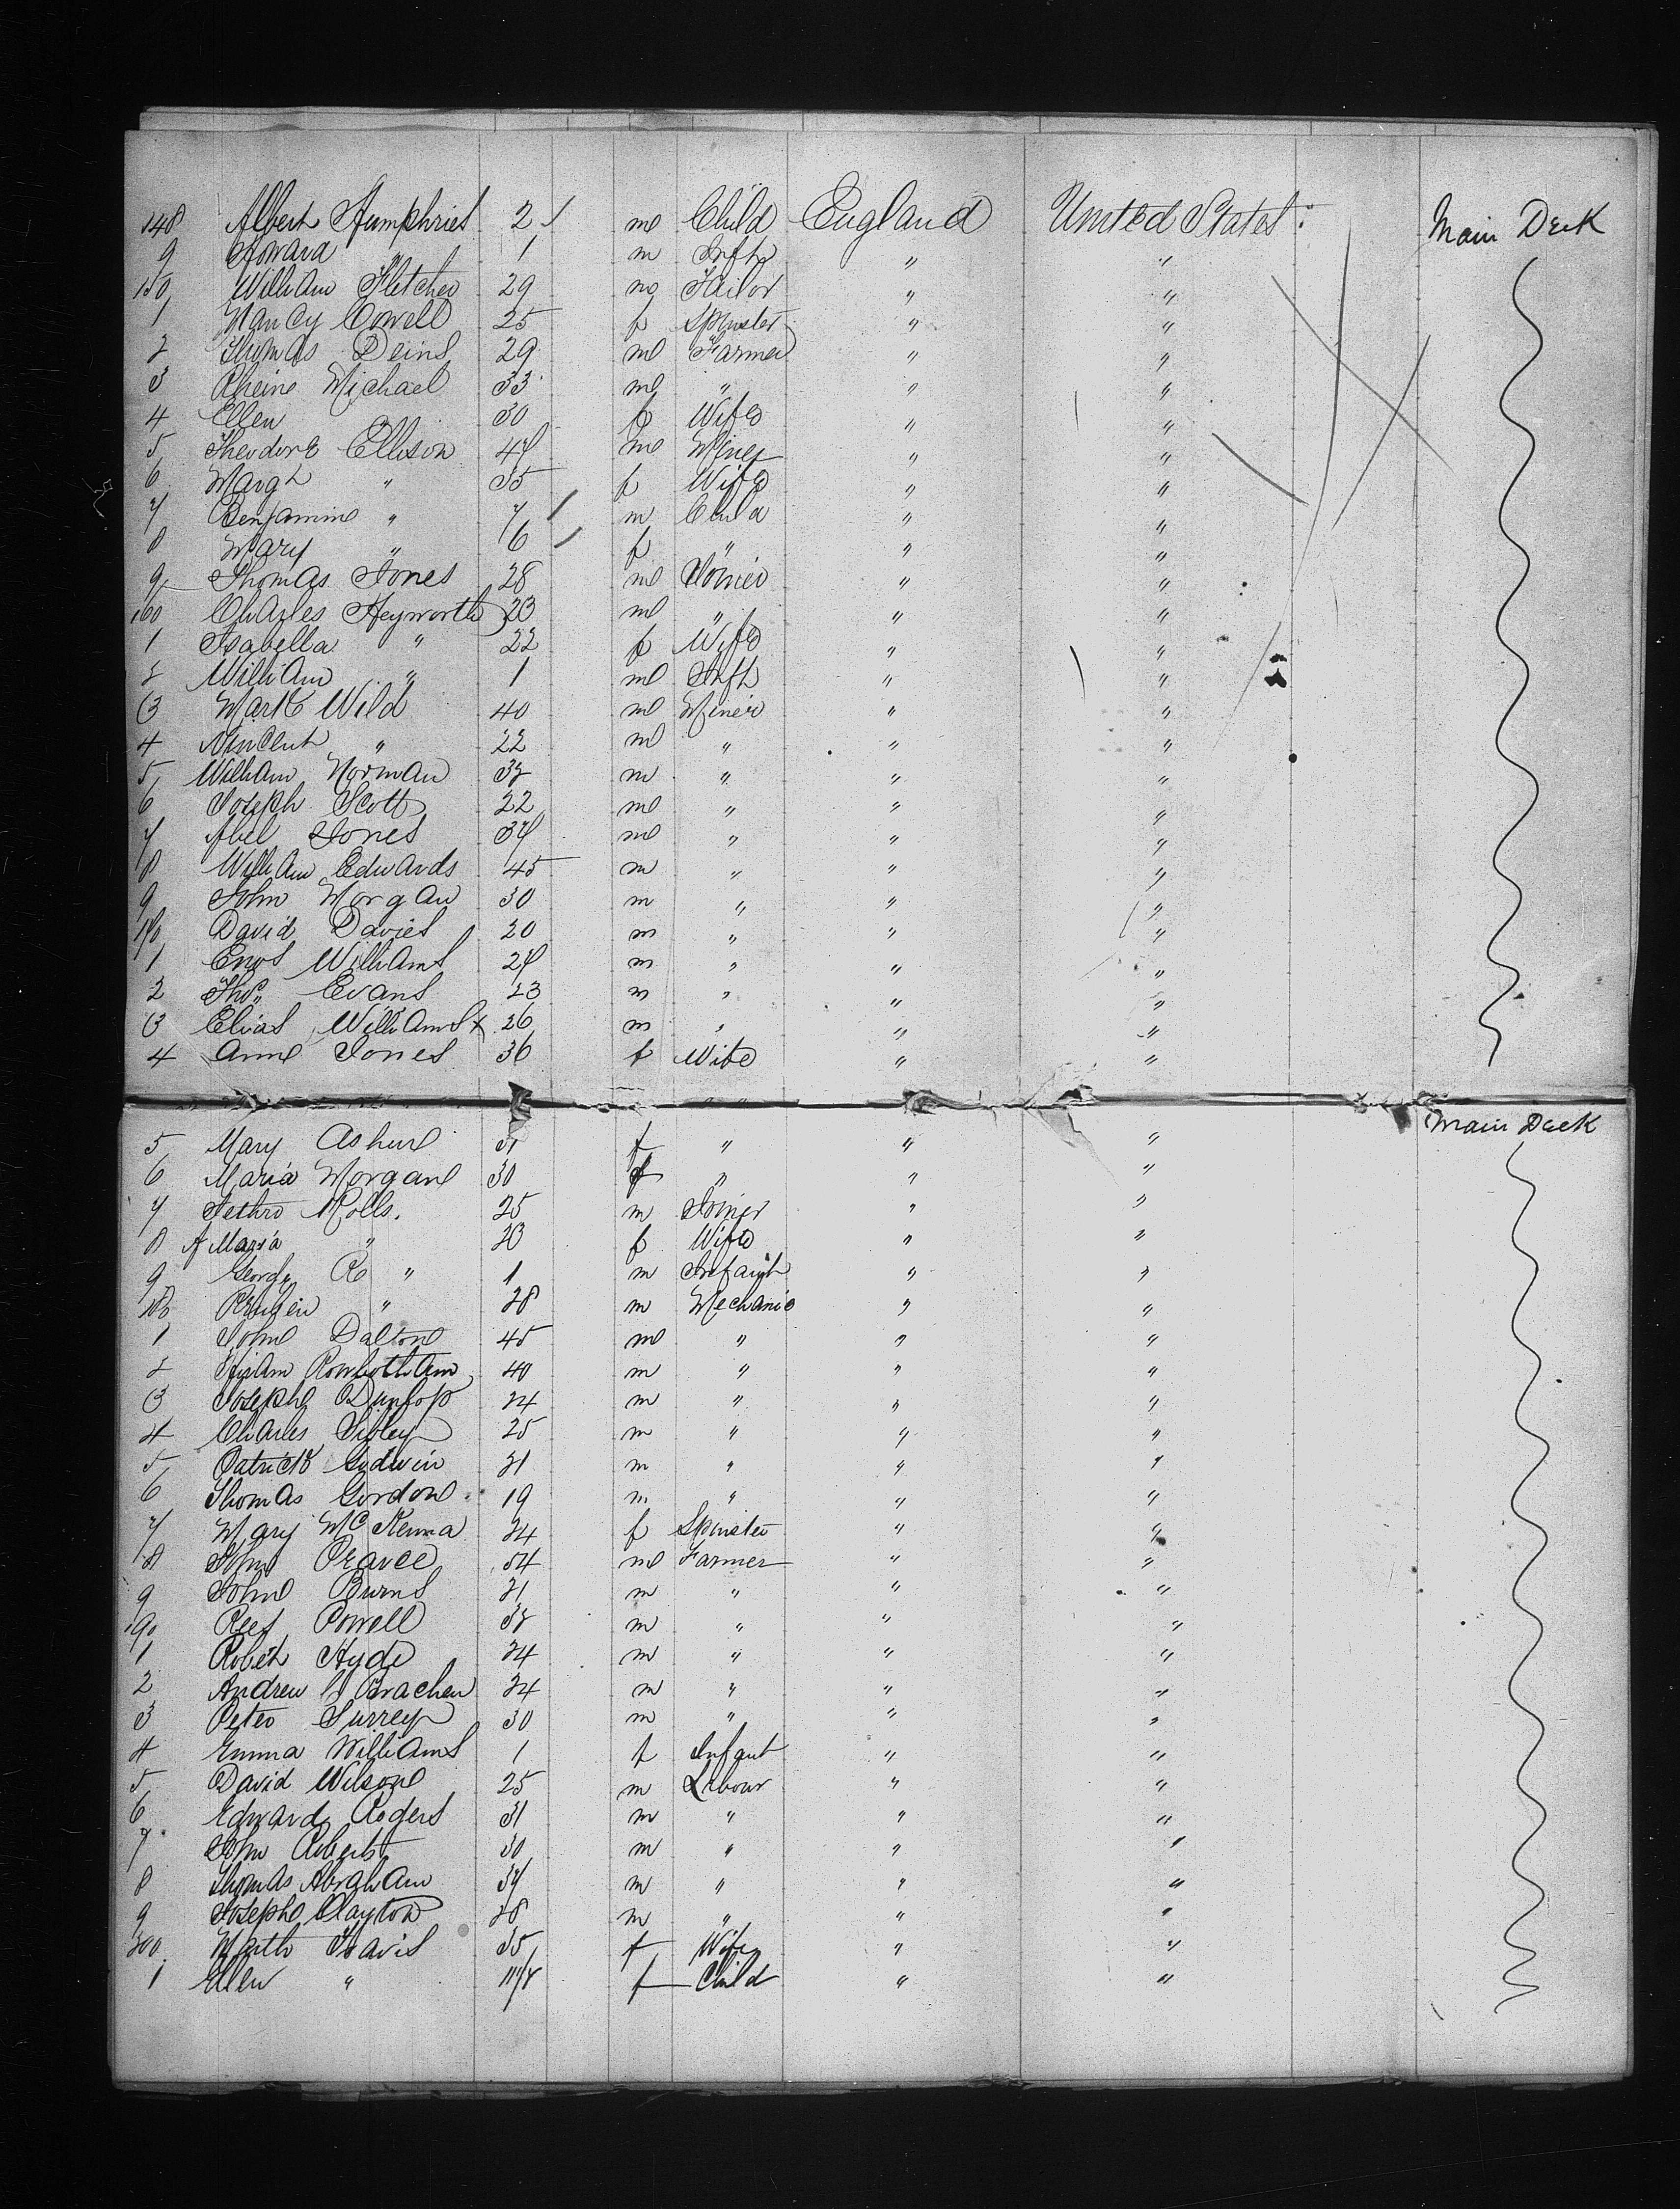 148 Albert Humphries 2 m Child England United States Main Deck
9 Howard " 1 m Inft " "
150 William Fletcher 29 m Tailor " "
1 Nancy Cowell 25 f Spinster " "
2 Thomas Deins 29 m Farmer " "
3 Rheine Michael 33 m " " "
4 Ellen 30 f Wife " "
5 Theodore Ellison 47 m Miner " "
6 Margt " 35 f Wife " "
7 Benjamin " 7 m Child " "
8 Mary " 6 f " " "
9 Thomas Jones 28 m Joiner " "
160 Charles Heyworth 23 m " " "
1 Isabella " 22 f Wife " "
2 William " 1 m Inft " "
3 Mark Wild 40 m Miner " "
4 Vincent " 22 m " " "
5 William Norman 32 m " " "
6 Joseph Scott 22 m " " "
7 Abel Jones 37 m " " "
8 William Edwards 45 m " " "
9 John Morgan 30 m " " "
170 David Davies 20 m " " "
1 Enos Williams 27 m " " "
2 Thos Evans 23 m " " "
3 Elias Williams x 26 m " " "
4 Anne Jones 36 f Wife " "
Main Deck
5 Mary Ashurl 31 f " " "
6 Maria Morgan 30 f " " "
7 Jethro Rolls. 25 m Joiner " "
8 A Maria " 23 f Wife " "
9 George R " 1 m Infant " "
180 Reuben " 28 m Mechanic " "
1 John Dalton 45 m " " "
2 Hiram Rowbotham 40 m " " "
3 Joseph Dunlop 24 m " " "
4 Charles Sibley 25 m " " "
5 Patrick Godwin 21 m " " "
6 Thomas Gordon 19 m " " "
7 Mary McKenna 24 f Spinster " "
8 John Pearce 54 m Farmer " "
9 John Burns 21 m " " "
190 Rees Powell 32 m " " "
1 Robert Hyde 24 m " " "
2 Andrew Brachen 24 m " " "
3 Peter Surrey 30 m " " "
4 Emma Williams 1 f Infant " "
5 David Wilson 25 m Labour " "
6 Edward Rogers 31 m " " "
7 John Roberts 30 m " " "
8 Thomas Abraham 37 m " " "
9 Joseph Clayton 28 m " " "
200 Marth Travis 35 f Wife " "
1 Ellen " f Child " "